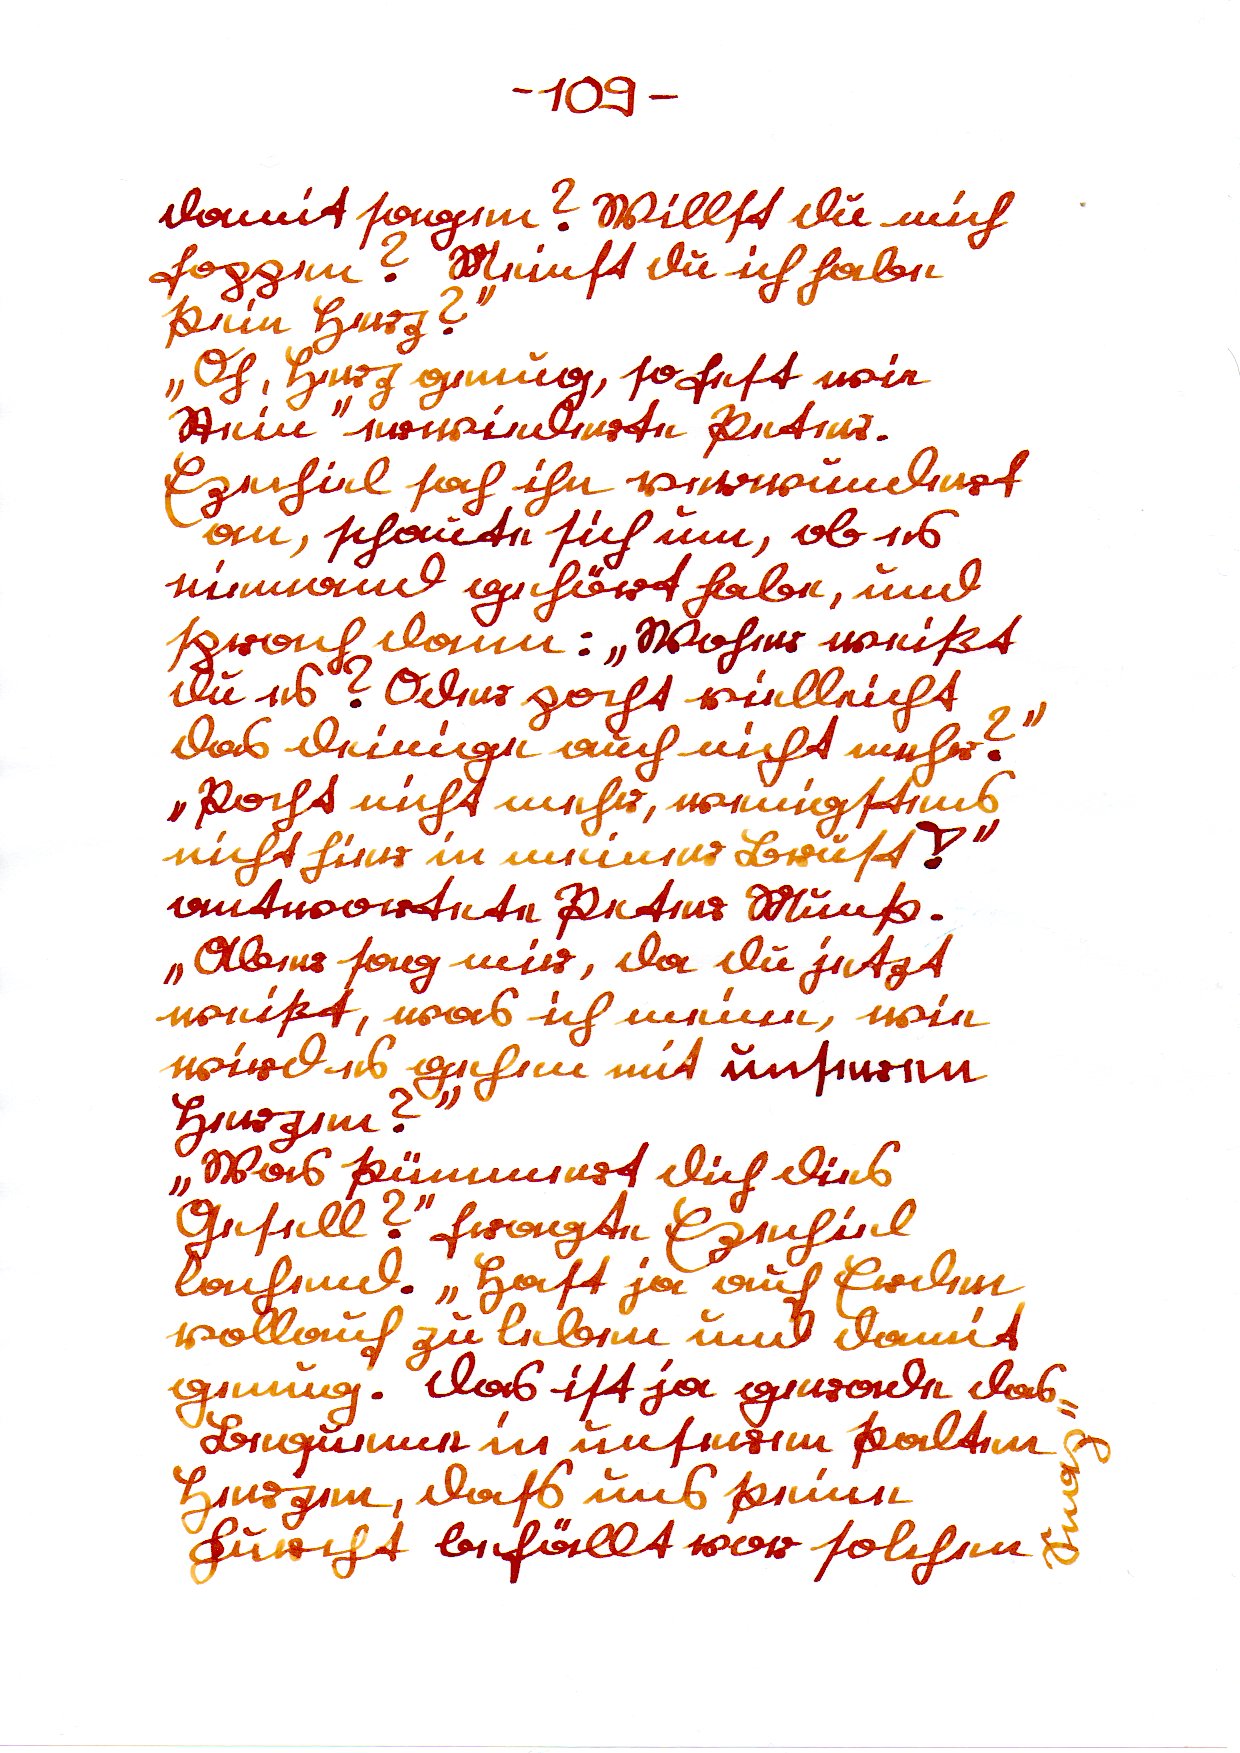 -109-
damit sagen? Willst du mich
foppen? Meinst du ich habe
kein Herz?"
„Oh, Herz genug, so fest wie
Stein" erwiderte Peter.
Ezechiel sah ihn verwundert
an, schaute sich um, ob es
niemand gehört habe, und
sprach dann: „Woher weißt
du es? Oder pocht vielleicht
das deinige auch nicht mehr?"
„Pocht nicht mehr, wenigstens
nicht hier in meiner Brust!"
antwortete Peter Munk.
„Aber sag mir, da du jetzt
weißt, was ich meine, wie
wird es gehen mit unseren
Herzen?"
„Was kümmert dich dies
Gesell?" fragte Ezechiel
lachend. „Hast ja auf Erden
vollauf zu leben und damit
genug. Das ist ja gerade das
Bequeme in unseren kalten
Herzen, dass uns keine
Furcht befällt vor solchen